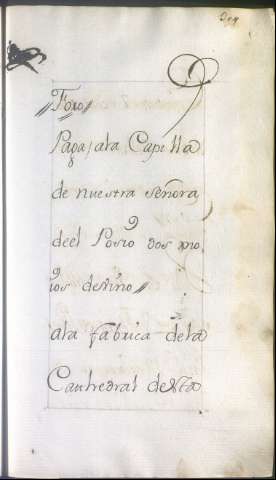 //Foro//
Paga, ala Capilla
de nuestra señora
deel Posio dos mo
ios de vino//
ala fabrica dela
Cathedral de